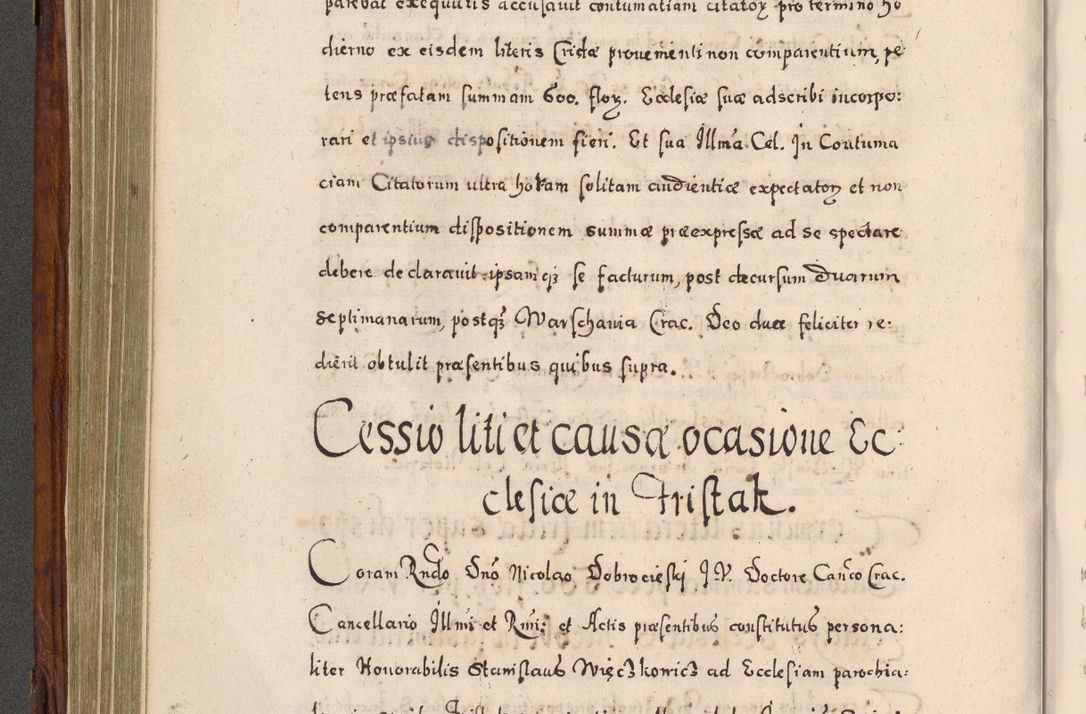 parebat exequutis accusavit contumatiam citatoꝝ pro termino ho
dierno ex eisdem literis Cridæ provenienti non comparentium, pe:
tens præfatam summam 600. floꝝ. Ecclesiæ suæ adscribi incorpo:
rari et ipsius dispositionem fieri. Et sua Illm̃a Cel. In Contuma
ciam Citatorum ultra horam solitam audientiæ expectatoꝝ et non
comparentium dispositionem summæ præexpressæ ad se spectare
debere declaravit ipsamqꝫ se facturum, post decursum Duarum
septimanarum, postqꝫ Warschavia Crac. Deo duce feliciter re:
dierit obtulit præsentibus quibus supra.
Cessio liti et causæ ocasione Ec:
clesiæ in Tristak.
Coram Rndo Dno Nicolao Dobrocieski J.V. Doctore Canco Crac.
Cancellario Illmi et Rmi: et Actis præsentibus constitutus persona:
liter Honorabilis Stanislaus Więczkowicz ad Ecclesiam parochia: